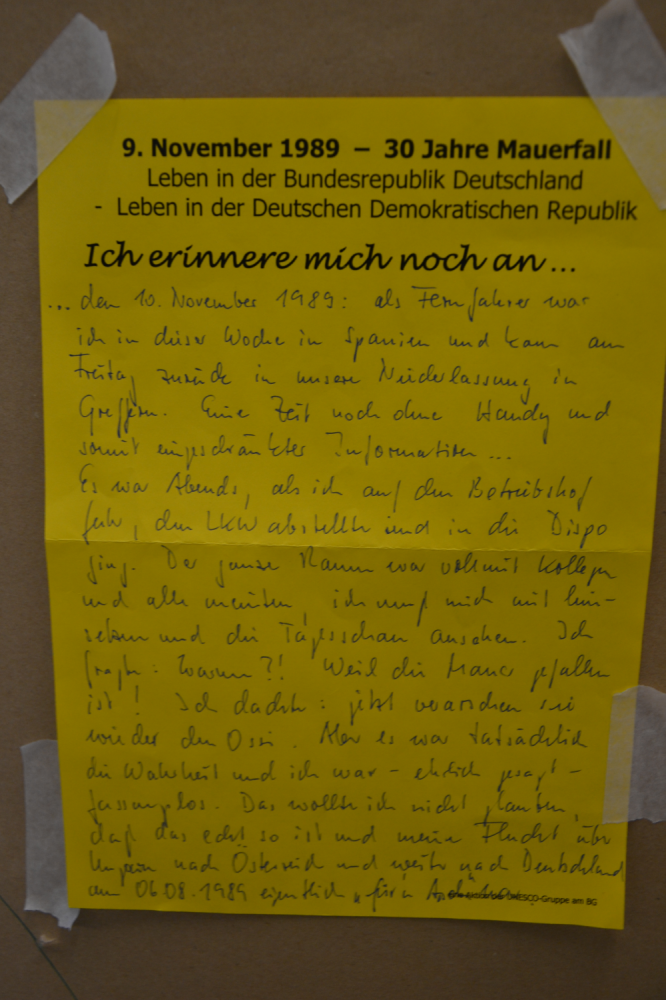 9. November 1989 – 30 Jahre Mauerfall
Leben in der Bundesrepublik Deutschland
- Leben in der Deutschen Demokratischen Republik
Ich erinnere mich noch an...
... den 10. November 1989: als Fernfahrer war
ich in dieser Woche in Spanien und kam am
Freitag zurück in unsere Niederlassung in
Greffern. Eine Zeit noch ohne Handy und
somit eingeschränkter Information...
Es war Abends, als ich auf den Betriebshof
fuhr, den LKW abstellte und in die Dispo
ging. Der ganze Raum war voll mit Kollegen
und alle meinten, ich muß mich mit hin-
setzen und die Tagesschau ansehen. Ich
fragte: Warum?! Weil die Mauer gefallen
ist! Ich dachte: jetzt verarschen sie
wieder den Ossi. Aber es war tatsächlich
die Wahrheit und ich war - ehrlich gesagt -
fassungslos. Das wollte ich nicht glauben,
daß das echt so ist und meine Flucht über
Ungarn nach Österreich und weiter nach Deutschland
am 06.08.1989 eigentlich „für'n
UNESCO-Gruppe am BG